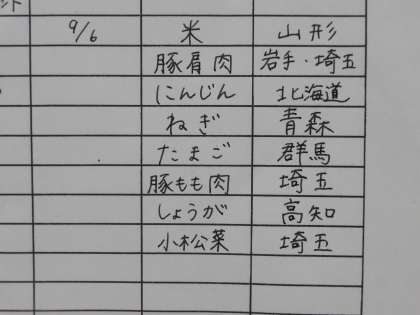 9/6 米 山形
豚肩肉 岩手・埼玉
にんじん 北海道
ねぎ 青森
たまご 群馬
豚もも肉 埼玉
しょうが 高知
小松菜 埼玉